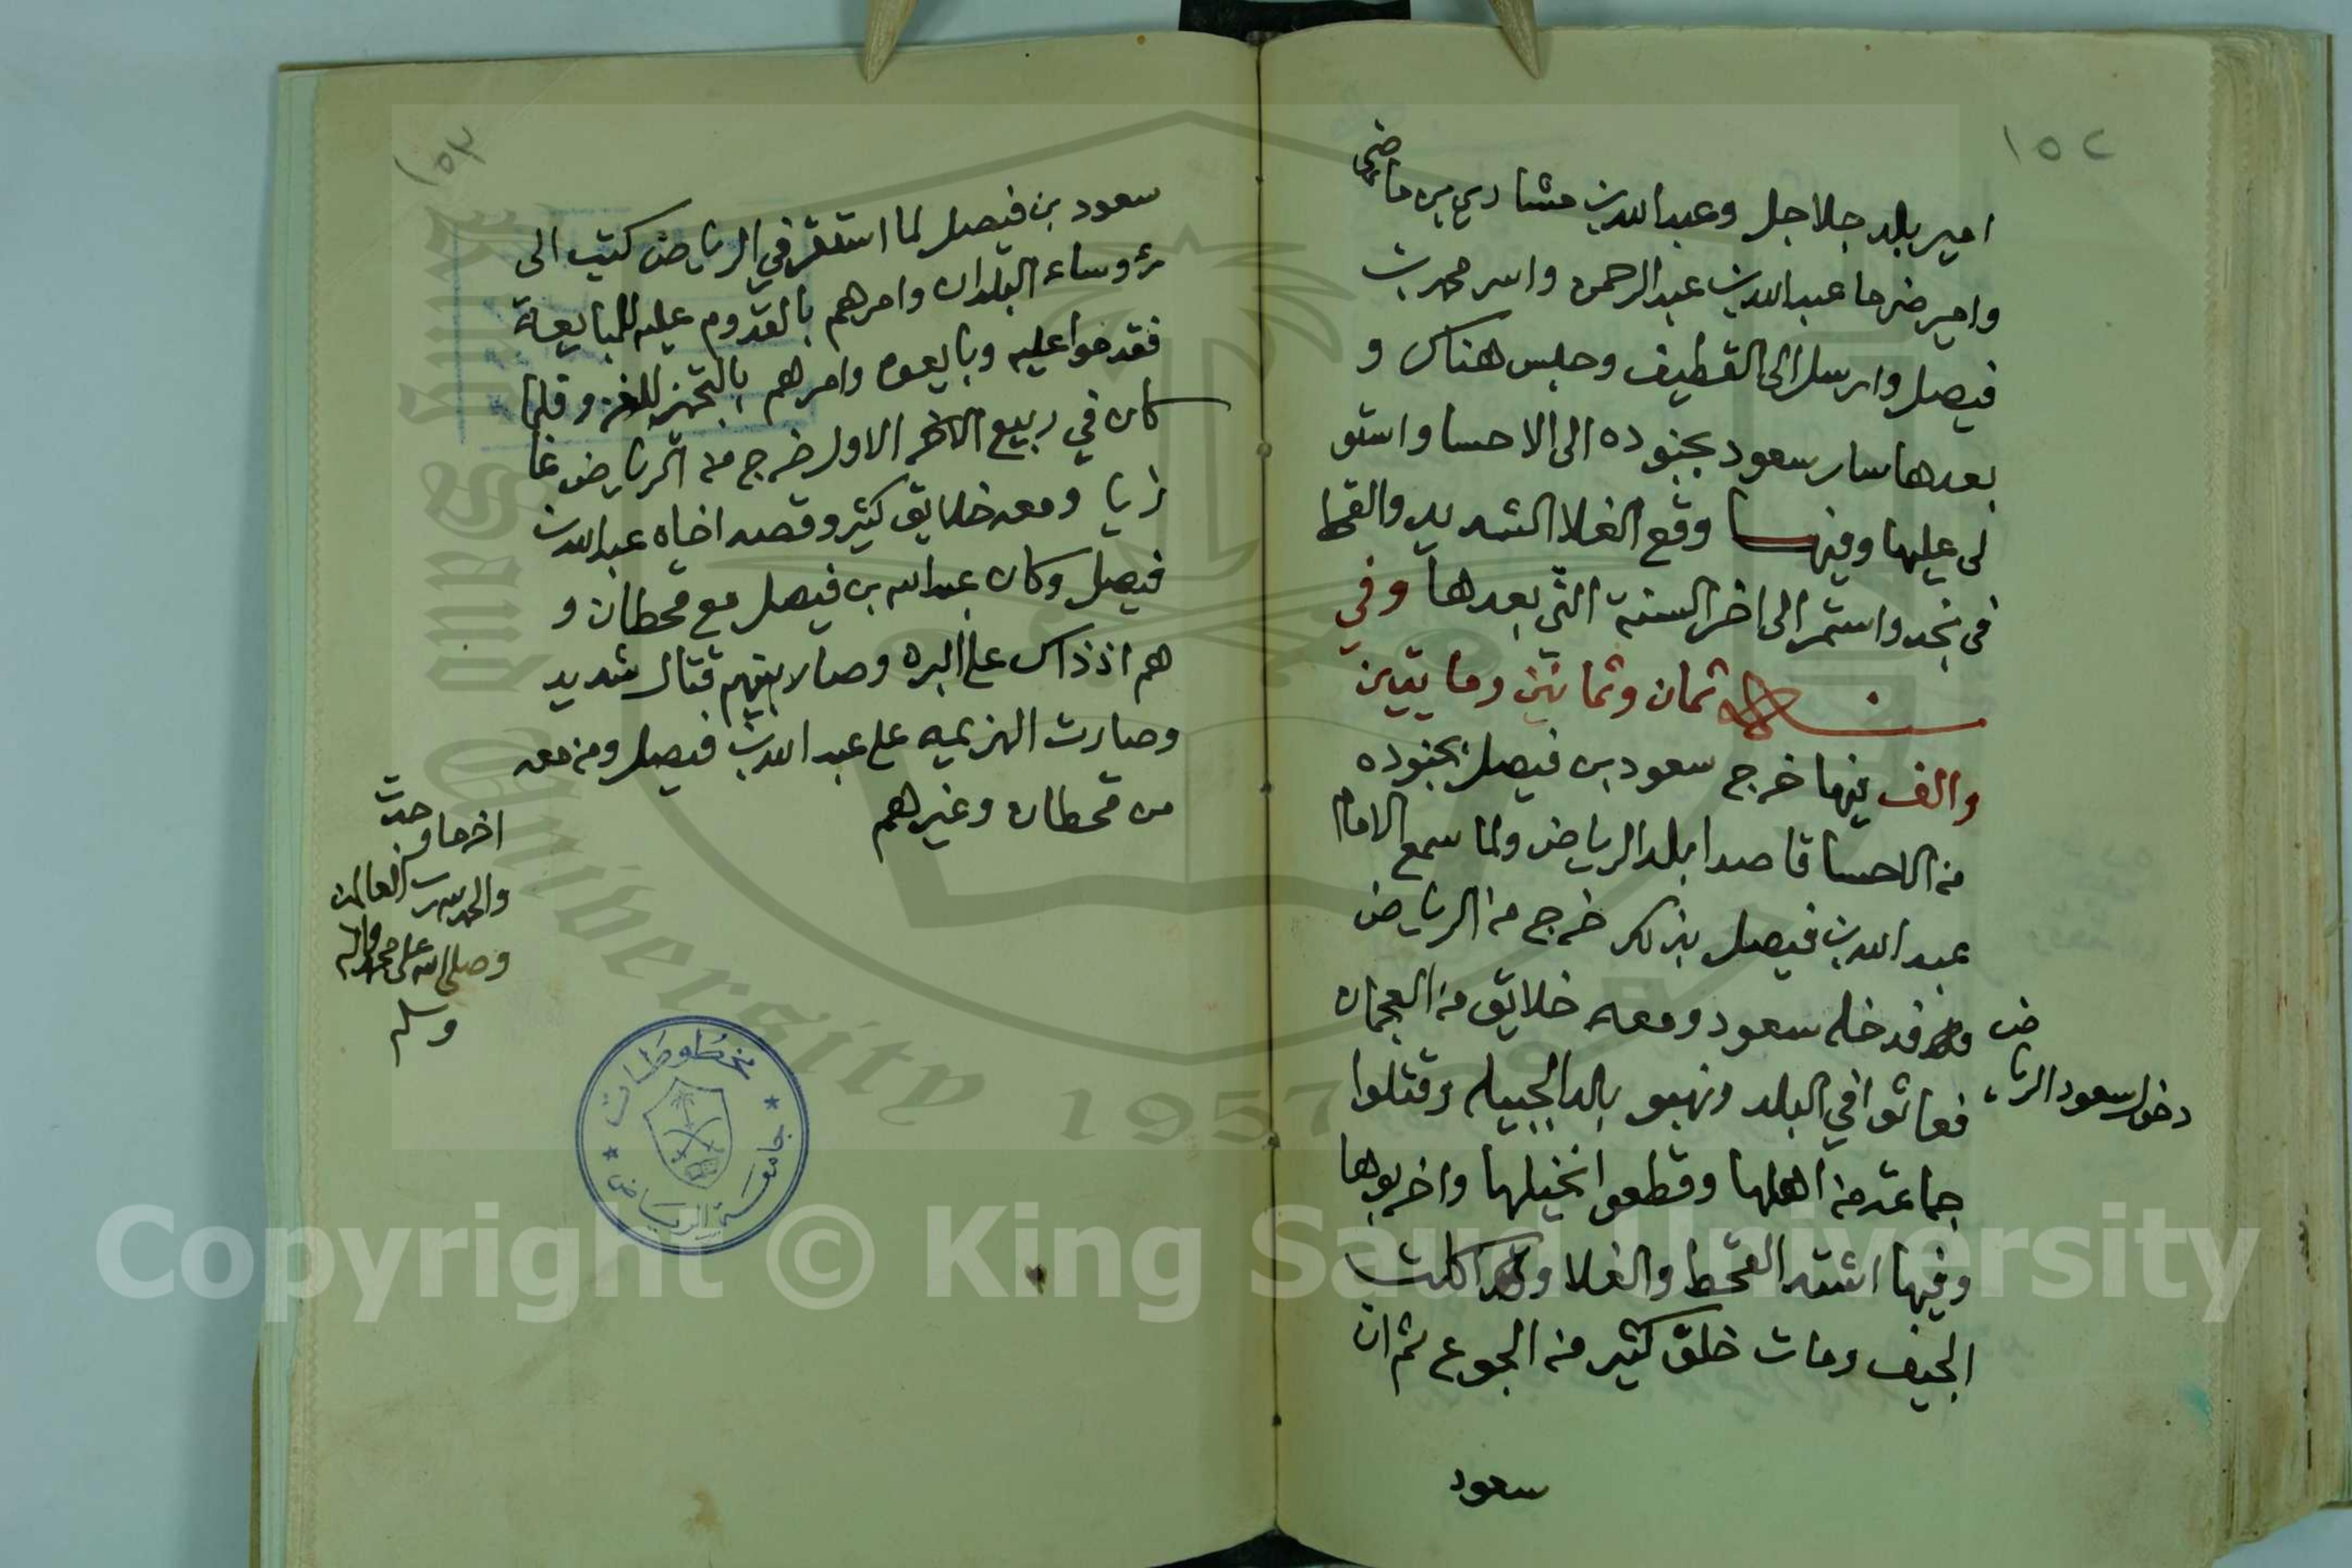 ١٥٢
امير بلد جلاجل وعبدالله بن مشاري بن ماضي
وامير ضرما عبدالله بن عبدالرحمن واسر محمد بن
فيصل وارسل الى القطيف وحبس هناك و
بعدها سار سعود بجنوده الى الاحسا واستو
لى عليها وفيها وقع الغلا الشديد والقحط
في نجد واستمر الى اخر السنة التي بعدها وفي
سنة ثمان وثمانين ومايتين
والف فيها خرج سعود بن فيصل بجنوده
من الاحسا قاصدا بلد الرياض ولما سمع الامام
عبدالله بن فيصل بذلك خرج من الرياض
فدخله سعود ومعه خلايق من العجمان
فعاثوا في البلد ونهبو بلد الجبيله وقتلوا
جماعته من اهلها وقطعوا نخيلها واخربوها
وفيها اشتد القحط والغلا واكلت
الجيف ومات خلق كثير من الجوع ثم ان
سعود
دخول سعود الريا
ض
١٥٣
سعود بن فيصل لما استقر في الرياض كتب الى
رؤوساء البلدان وامرهم بالقدوم عليه للمبايعة
فقدموا عليه وبايعوه وامرهم بالتجهز للغزو فلما
كان في ربيع الاول خرج من الرياض غا
زيا ومعه خلايق كثير وقصد اخاه عبدالله بن
فيصل وكان عبدالله بن فيصل مع قحطان و
هم اذ ذاك على البره وصار بينهم قتال شديد
وصارت الهزيمه على عبدالله بن فيصل ومن معه
من قحطان وغيرهم
اخر ما وجدت
والحمد لله رب العالمين
وصلى الله على محمد واله
وسلم
مخطوطات
جامعة الرياض
King Saud University
1957
Copyright © King Saud University